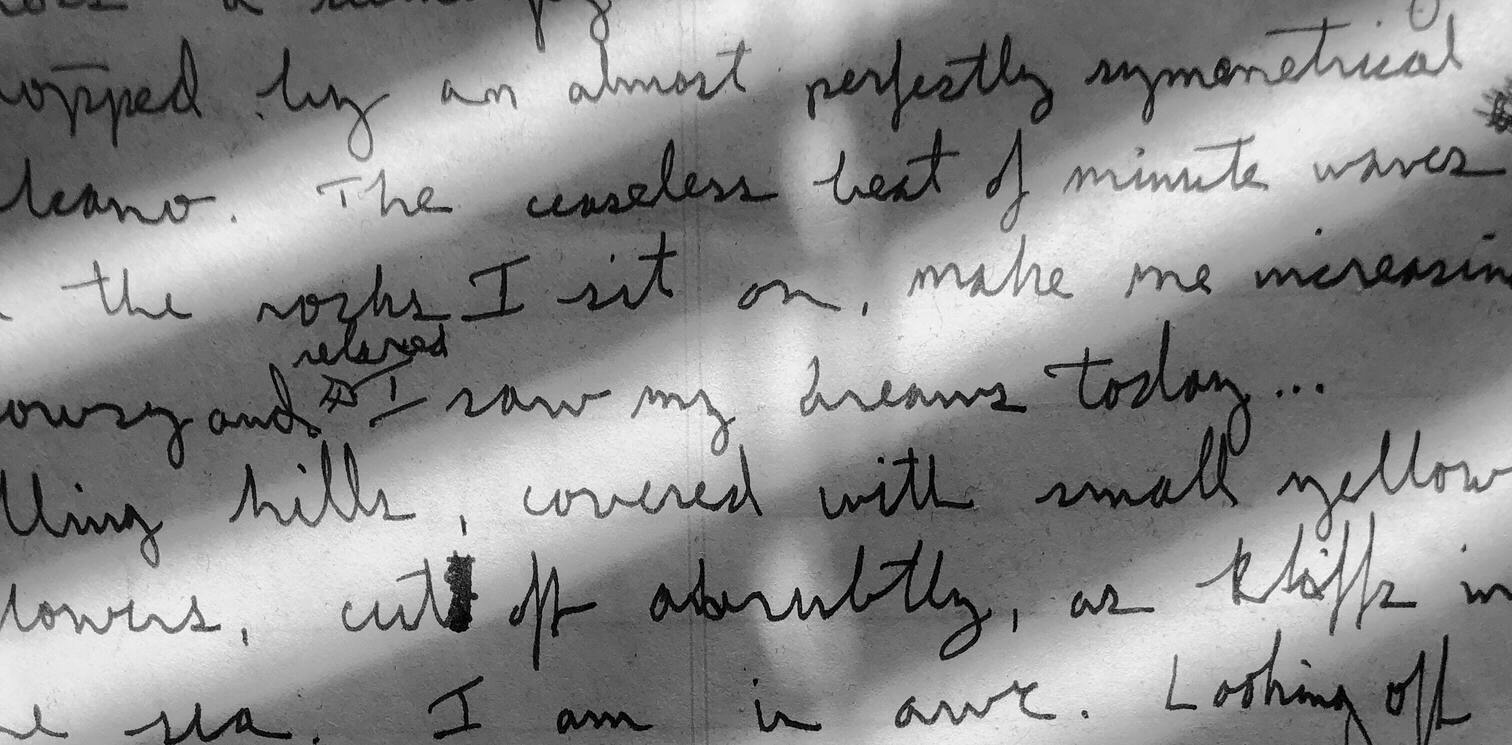 topped by an almost perfestly symonetrical
lcano. The ceaseless beat of minute waves
the rocks I sit on, make me increasin
relaxed
owsy and I saw my dreams today...
lling hills, covered with small yellow
lowers, cut off abrubtly, as kliffs in
e sea. I am in awe. Looking off